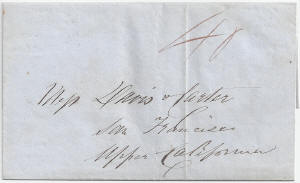 40
Messrs Davis & Carter
San Francisco
Upper California